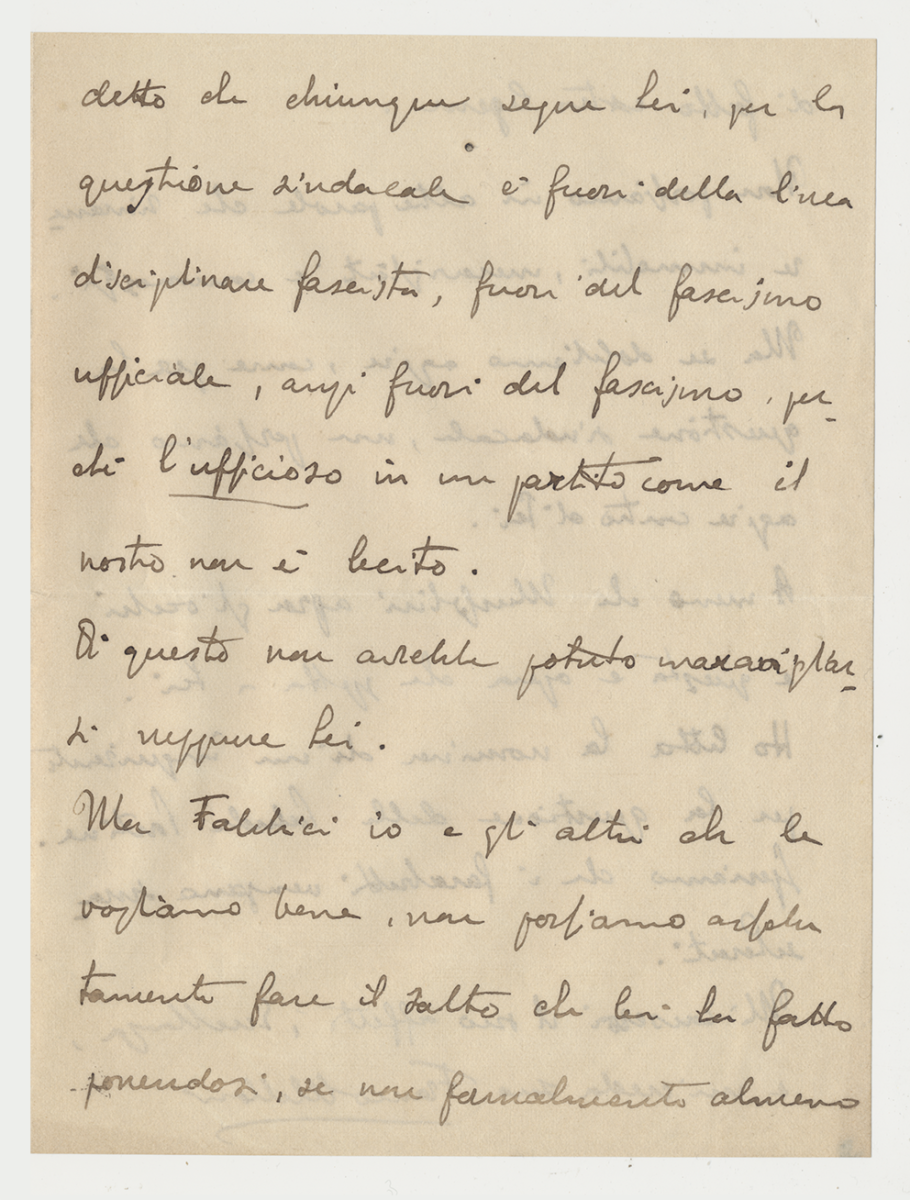 detto che chiunque segue Lei, per la
questione sindacale è fuori della linea
disciplinare fascista, fuori del fascismo
ufficiale, anzi fuori del fascismo, per-
chè l'ufficioso in un partito come il
nostro non è lecito.
Di questo non avrebbe potuto maravigliar-
si neppure Lei.
Ma Fabbrici io e gli altri che le
vogliamo bene, non possiamo assolu
tamente fare il salto che Lei ha fatto
ponendosi, se non formalmente almeno